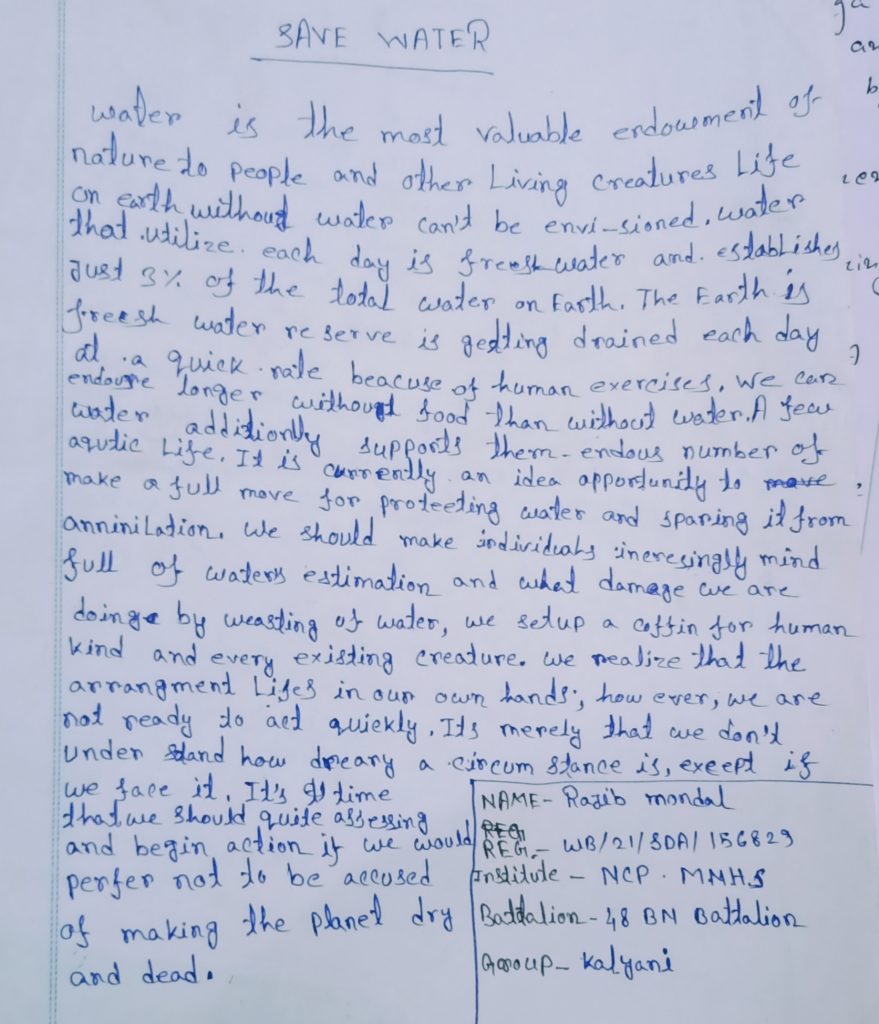 SAVE WATER
water is the most valuable endowment of
nature to people and other Living creatures Life
on earth without water can't be envi-sioned. water
that utilize. each day is freesh water and. establishes
Just 3% of the total water on Earth. The Earth is
freesh water reserve is getting drained each day
at a quick rate beacuse of human exercises. We can
endoure longer without food than without water. A few
water additionlly supports them-endous number of
aqutic Life. It is currently an idea apportunity to move
make a full move for protecting water and sparing it from
anninilation. We should make individuals incresingly mind
full of waters estimation and what damage we are
doing by weasting of water, we setup a coffin for human
kind and every existing creature. we realize that the
arrangment Lifes in our own hands; how ever, we are
not ready to act quickly. Its merely that we don't
under stand how dreary a circum stance is, except if
we face it. It's time
that we should quite assessing
and begin action if we would
perfer not to be accused
of making the planet dry
and dead.
NAME- Rajib mondal
REG
REG.- WB/21/SDA/156829
Institute - NCP. MNHS
Battalion - 48 BN Battalion
Group - Kalyani
ga
an
b